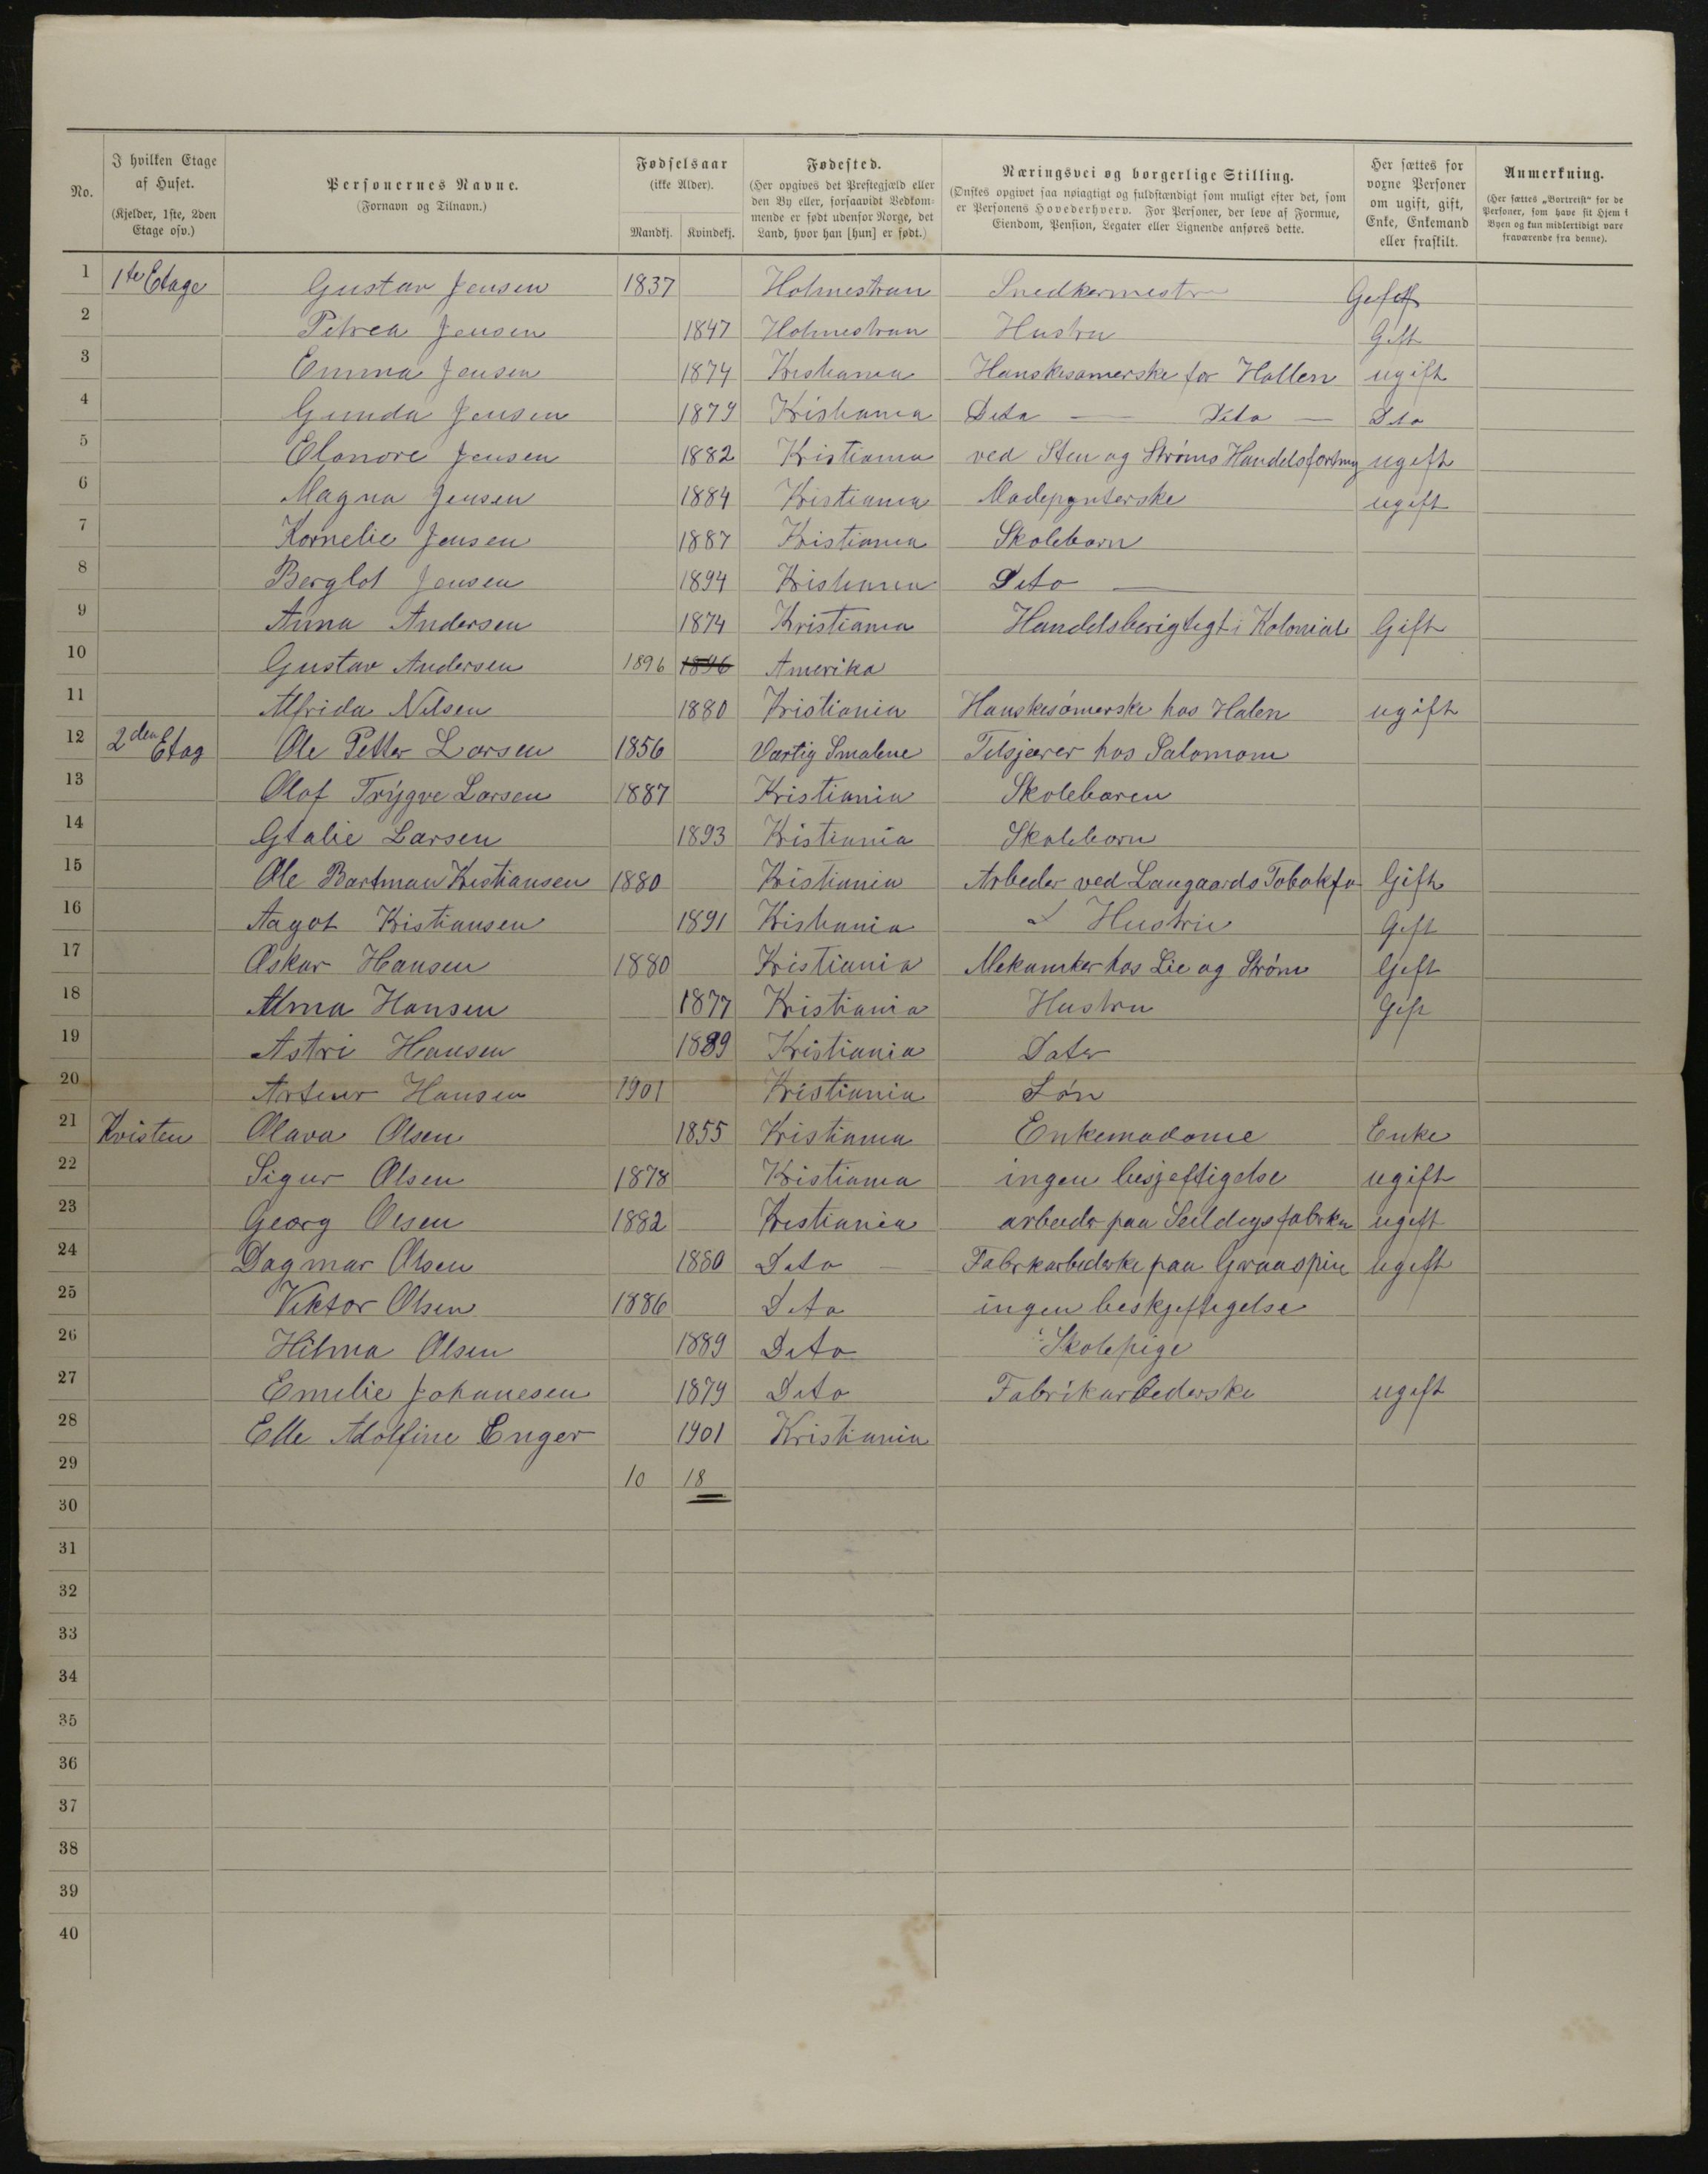 No.
I hvilken Etage af Huset. (Kjelder, 1ste, 2den Etage osv.)
Personernes Navne. (Fornavn og Tilnavn.)
Fødselsaar (ikke Alder). Mandkj. Kvindekj.
Fødested. (Her opgives det Prestegjæld eller den By eller, forsaavidt Vedkommende er født udenfor Norge, det Land, hvor han [hun] er født.)
Næringsvei og borgerlige Stilling. (Ønskes opgivet saa nøiagtigt og fuldstændigt som muligt efter det, som er Personens Hovederhverv. For Personer, der leve af Formue, Eiendom, Pension, Legater eller Lignende anføres dette.
Her sættes for voxne Personer om ugift, gift, Enke, Enkemand eller fraskilt.
Anmerkning. (Her sættes „Bortreist" for de Personer, som have sit Hjem i Byen og kun midlertidigt være fraværende fra denne).
1 1ste Etage Gustav Jensen 1837 Holmestran Snedkermestr Gift
2 Petrea Jensen 1847 Holmestran Hustru Gift
3 Emma Jensen 1874 Kristiania Hanskesømerske for Hallen ugift
4 Gunda Jensen 1879 Kristiania Dito — Dito — Dito
5 Elonore Jensen 1882 Kristiania ved Sten og Strøms Handelsfortning ugift
6 Magna Jensen 1884 Kristiania Modepynterske ugift
7 Kornelie Jensen 1887 Kristiania Skolebarn
8 Berglot Jensen 1894 Kristiania Dito —
9 Anna Andersen 1874 Kristiania Handelsberigtegt i Kolonial Gift
10 Gustav Andersen 1896 1896 Amerika
11 Alfrida Nilsen 1880 Kristiania Hanskesømerske hos Halen ugift
12 2den Etag Ole Petter Larsen 1856 Vartig Smalene Tilsjærer hos Salomom
13 Olaf Trygve Larsen 1887 Kristiania Skolebaren
14 Gtalie Larsen 1893 Kristiania Skolebarn
15 Ole Bartman Kristiansen 1880 Kristiania Arbeder ved Langaards Tobakfa Gift
16 Aagot Kristiansen 1891 Kristiania Hustru Gift
17 Oskar Hansen 1880 Kristiania Mekaniker hos Lie og Strøm Gift
18 Alma Hansen 1877 Kristiania Hustru Gift
19 Astri Hansen 1899 Kristiania Dater
20 Arteur Hansen 1901 Kristiania Søn
21 Kvisten Olava Olsen 1855 Kristiania Enkemadame Enke
22 Sigur Olsen 1878 Kristiania ingen besjeftigelse ugift
23 Georg Olsen 1882 Kristiania arbeder paa Seildugsfabrken ugift
24 Dagmar Olsen 1880 Dito — Fabrkarbederke paa Graaspin ugift
25 Viktor Olsen 1886 Dito ingen beskjeftigelse
26 Hilma Olsen 1889 Dito Skolepige
27 Emelie Johanesen 1879 Dito Fabrikarbederske ugift
28 Elle Adolfine Enger 1901 Kristiania
29 10 18
30
31
32
33
34
35
36
37
38
39
40